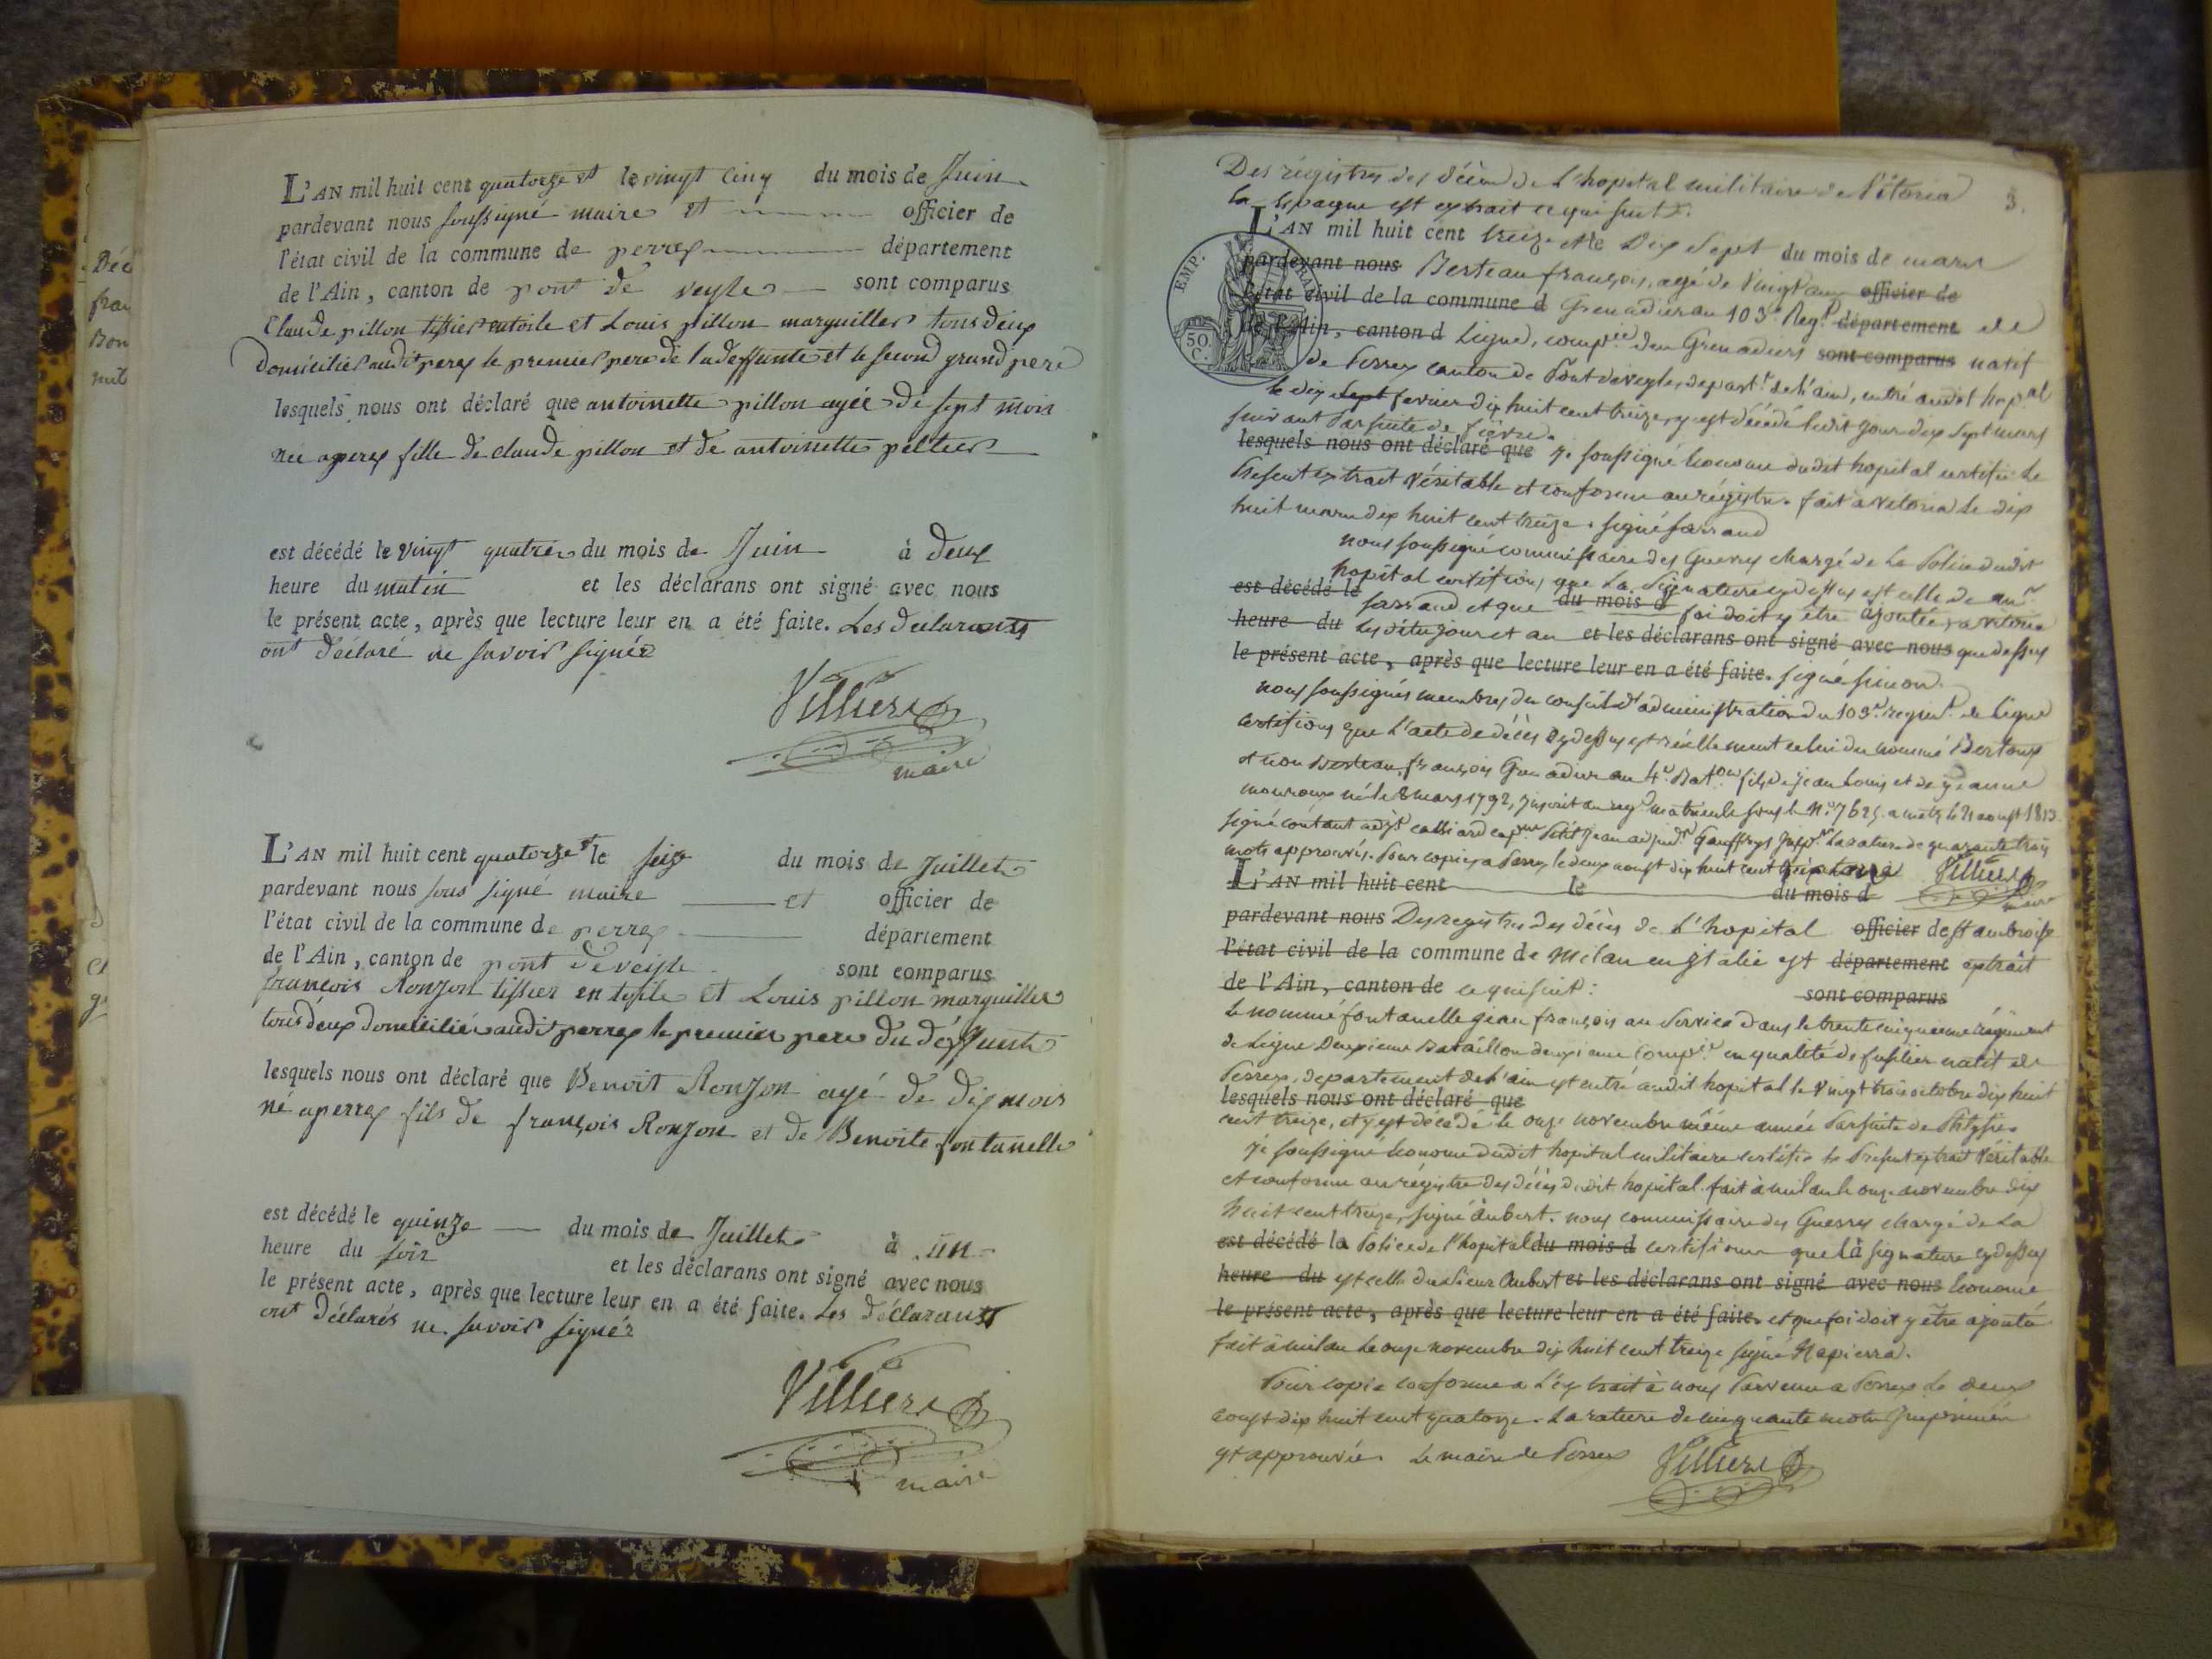 L'AN mil huit cent quatorze et le vingt cinq du mois de Juin
pardevant nous soussigné maire et officier de
l'état civil de la commune de perrex département
de l'Ain, canton de pont de veyle sont comparus
Claude pillon tissier entoile et Louis pillon marguiller tous deux
domiciliés audit perex le premier pere de la deffunte et le second grand pere
lesquels nous ont déclaré que antoinette pillon agée de sept mois
née a perex fille de claude pillon et de antoinette peltier
est décédé le vingt quatre du mois de Juin à deux
heure du matin et les déclarans ont signé avec nous
le présent acte, après que lecture leur en a été faite. Les declarants
ont déclaré ne savoir signér
Villiers
maire
L'AN mil huit cent quatorze et le seize du mois de Juillet
pardevant nous sous signé maire et officier de
l'état civil de la commune de perrex département
de l'Ain, canton de pont de veyle sont comparus
françois Ronjon tissier en toile et Louis pillon marguiller
tous deux domiciliés audit perrex le premier pere du deffunt
lesquels nous ont déclaré que Benoit Ronjon agé de dix mois
né a perrex fils de françois Ronjon et de Benoite fontanelle
est décédé le quinze du mois de Juillet à un
heure du soir et les déclarans ont signé avec nous
le présent acte, après que lecture leur en a été faite. Les déclarants
ont déclarés ne savoir signér
Villiers
maire
3.
Des régistres des décès de L'hopital militaire de Vitoria
en Espagne est extrait ce qui suit.
L'AN mil huit cent treize et le Dix Sept du mois de mars
pardevant nous Berteau françois, agé de Vingt ans officier de
l'état civil de la commune d Grenadier au 103e Regt département de
de l'Ain, canton d Ligne, compie des Grenadiers sont comparus natif
EMP.
50
C.
de Perrex canton de Pont de veyle, depart de l'ain, entré audit hopal
le dix Sept fevrier dix huit cent treize, y est décédé ledit jour dix Sept mars
suivant Par suite de fièvre.
lesquels nous ont déclaré que Je soussigné Econome dudit hopital certifie le
Present extrait Véritable et conforme au régistre. fait a Vitoria le dix
huit mars dix huit cent treize. signé farrand
nous soussigné commissaire des Guerres chargé de la Police dudit
hopital certifions que La Signature cydessus est celle de mr
est décédé le farrand et que du mois d foi doit y être ajoutée, a Vitoria
heure du les dits jour et an et les déclarans ont signé avec nous que dessus
le présent acte, après que lecture leur en a été faite. signé simon
nous soussignés membres du conseil d'administration du 103e regimt de Ligne
certifions que L'acte de décès cydessus est réellement celui du nommé Bertoux
et non Berteau, françois Grenadier au 4e Baton fils de jean Louis et de jeanne
né le 8 mars 1792, Inscrit au regre matricule sous le No 7625. a metz le 21 aoust 1813
mots approuvés. Pour copie, a Perrex le deux aoust dix huit cent
Villiers
maire
L'AN mil huit cent le du mois d
pardevant nous Des registres des décès de L'hopital officier de st ambroise
l'état civil de la commune de Milan en Italie est département extrait
de l'Ain, canton de ce qui suit: sont comparus
Le nommé fontanelle jean françois au Service dans le trente cinquieme régiment
de Ligne Deuxieme Bataillon deuxieme compie en qualité de fusilier natif de
Perrex, departement de l'ain est entré audit hopital le Vingt trois octobre dix huit
lesquels nous ont déclaré que
cent treize, et y est décédé le onze novembre même année Par suite de Phtysie.
Je soussigné Econome dudit hopital militaire certifie le Present extrait Véritable
et conforme au régistre des décès dudit hopital. fait à milan le onze novembre dix
huit cent treize, signé aubert. nous commissaire des Guerres chargé de La
est décédé la Police de l'hopital du mois d certifions que là signature cydessus
heure du est celle du Sieur Aubert et les déclarans ont signé avec nous Econome
le présent acte, après que lecture leur en a été faite. et que foi doit y être ajoutée
fait à milan le onze novembre dix huit cent treize signé Napierra.
Pour copie conforme a L'extrait à nous Parvenu a Perrex le deux
aoust dix huit cent quatorze. La rature de cinquante mots Imprimés
est approuvée. Le maire de Perrex Villiers